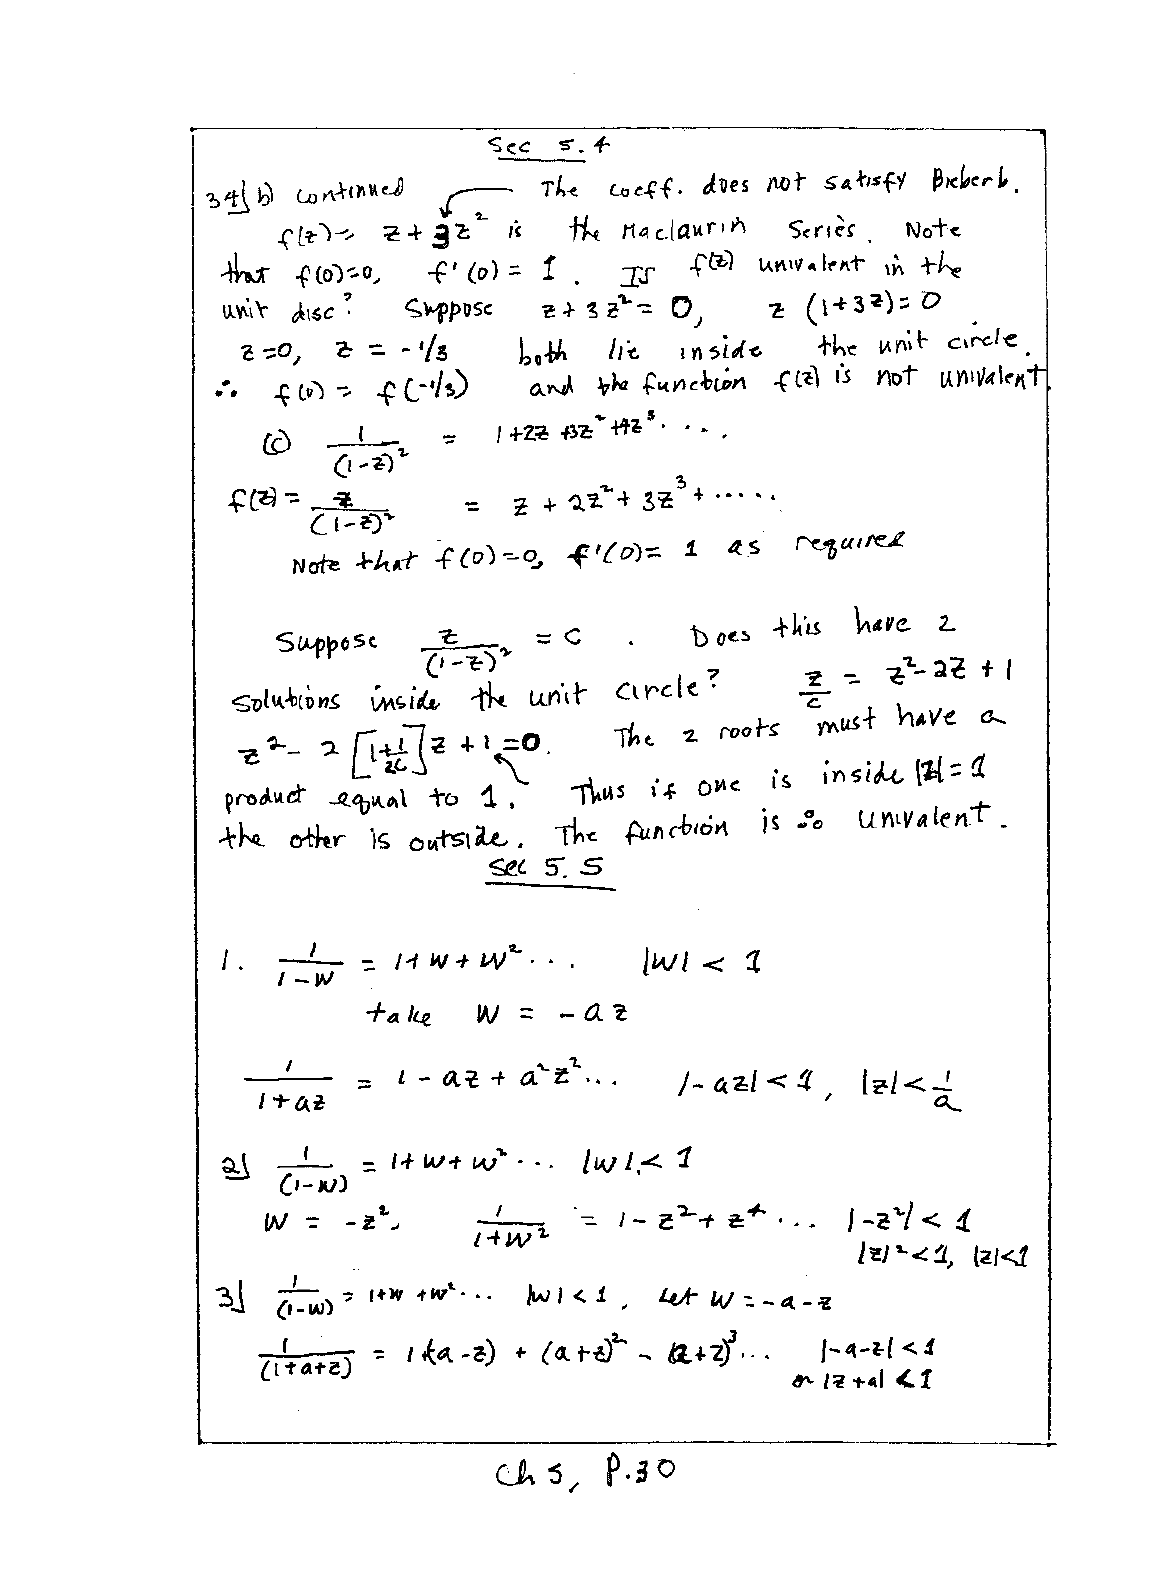 Sec 5.4
34| b) continued The coeff. does not satisfy Bieberb.
f(z) = z + 3z² is the Maclaurin Series. Note
that f(0)=0, f'(0) = 1. Is f(z) univalent in the
unit disc? Suppose z + 3z² = 0, z (1+3z) = 0.
z=0, z = -1/3 both lie inside the unit circle.
∴ f(0) = f(-1/3) and the function f(z) is not univalent
(c) 1/(1-z)² = 1+2z+3z²+4z³.....
f(z) = z/(1-z)² = z + 2z² + 3z³ + .....
Note that f(0)=0, f'(0)= 1 as required
Suppose z/(1-z)² = c. Does this have 2
solutions inside the unit circle? z/c = z²-2z+1
z² - 2[1+1/2c]z + 1 = 0. The 2 roots must have a
product equal to 1. Thus if one is inside |z|=1
the other is outside. The function is ∴ univalent.
Sec 5.5
1. 1/(1-w) = 1+w+w²... |w| < 1
take w = -az
1/(1+az) = 1 - az + a²z²... |-az| < 1, |z| < 1/a
2| 1/(1-w) = 1+w+w²... |w| < 1
w = -z², 1/(1+w²) = 1 - z² + z⁴... |-z²| < 1
|z|² < 1, |z| < 1
3| 1/(1-w) = 1+w+w²... |w| < 1, Let w = -a-z
1/(1+a+z) = 1+(a-z) + (a+z)² - (a+z)³... |-a-z| < 1
or |z+a| < 1
Ch 5, P.30